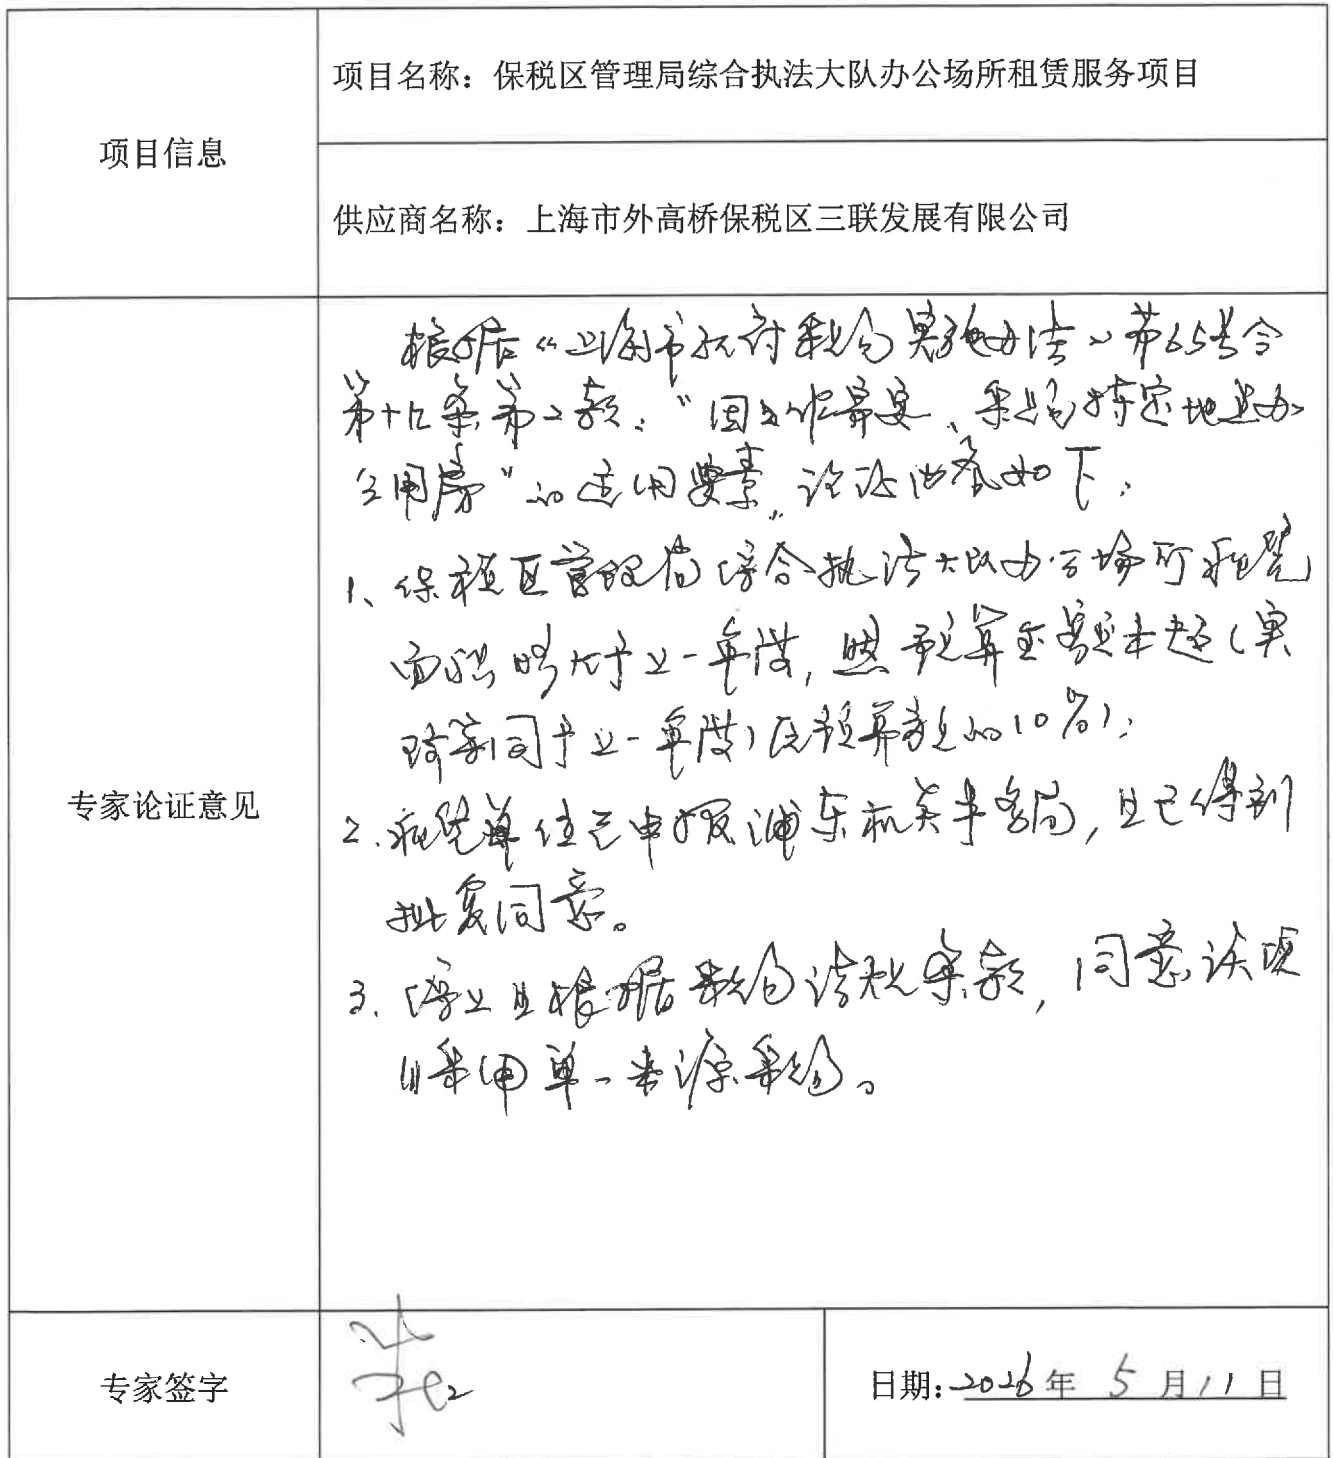 项目信息
项目名称：保税区管理局综合执法大队办公场所租赁服务项目
供应商名称：上海市外高桥保税区三联发展有限公司
专家论证意见
根据《上海市政府采购实施办法》第65号令
第十九条第2款："因工作需要、采购特定地点办
公用房"的适用要素，论证内容如下：
1、保税区管理局综合执法大队办公场所租赁
面积略大于上一年度，然预算金额未超（实
等同于上一年度）原预算额的10%）；
2.租赁单位已申报浦东机关事务局，且已得到
批复同意。
3.综上且根据采购法规条款，同意该项
目采用单一来源采购。
专家签字
日期：2026年 5 月11日